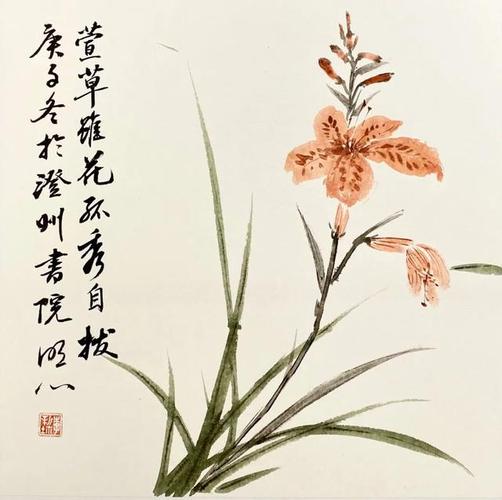 萱草雖花孤秀自拔
庚子冬於澄州書院明心